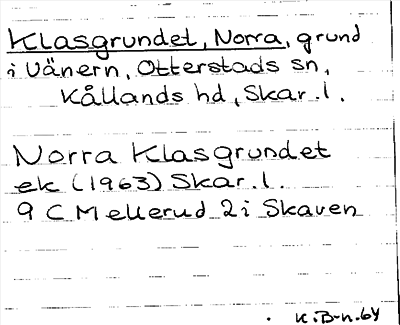 Klasgrundet, Norra, grund
i Vänern, Otterstads sn,
Kållands hd, Skar. l.
Norra Klasgrundet
ek (1963) Skar. l.
9 C Mellerud 2 i Skaven
K. B-n. 64